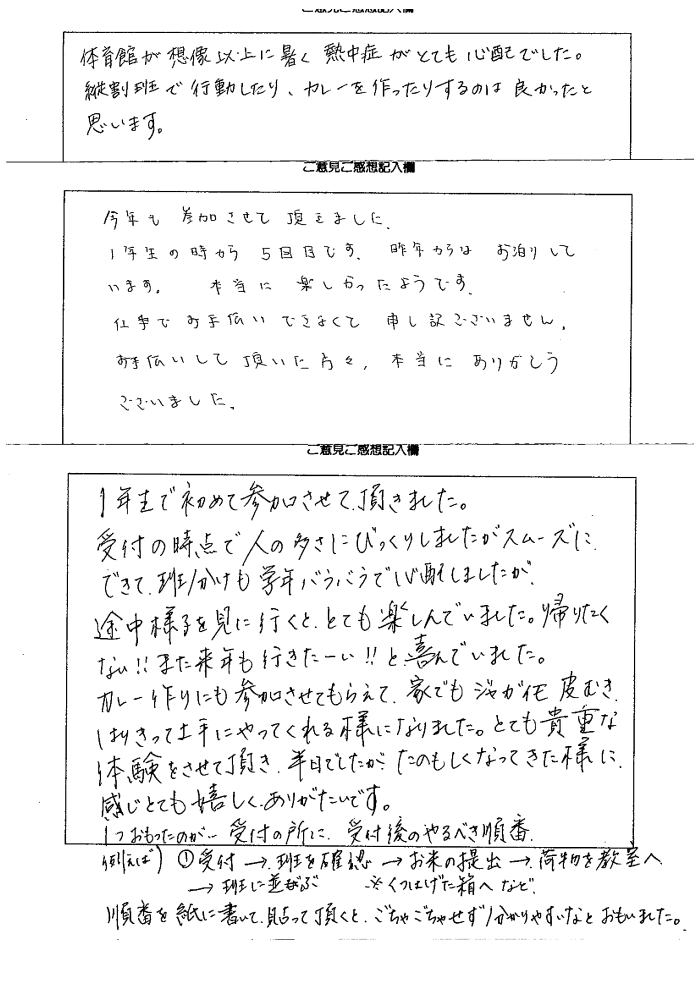 ご意見ご感想記入欄
体育館が想像以上に暑く熱中症がとても心配でした。
縦割班で行動したり、カレーを作ったりするのは良かったと
思います。
ご意見ご感想記入欄
今年も参加させて頂きました。
1年生の時から5回目です。昨年からはお泊りして
います。本当に楽しかったようです。
仕事でお手伝いできなくて申し訳ございません。
お手伝いして頂いた方々、本当にありがとう
ございました。
ご意見ご感想記入欄
1年生で初めて参加させて頂きました。
受付の時点で人の多さにびっくりしましたがスムーズに
できて、班分けも学年バラバラで心配しましたが、
途中様子を見に行くと、とても楽しんでいました。帰りたく
ない!!また来年も行きたーい!!と、喜んでいました。
カレー作りにも参加させてもらえて、家でもジャガイモ皮むき、
はりきって上手にやってくれる様になりました。とても貴重な
体験をさせて頂き、半日でしたが、たのもしくなってきた様に
感じとても嬉しく、ありがたいです。
1つおもったのが… 受付の所に、受付後のやるべき順番、
例えば) ①受付 → 班を確認 → お米の提出 → 荷物を教室へ
→ 班に並ぶ ※くつはげた箱へ など、
順番を紙に書いて、貼って頂くと、ごちゃごちゃせず分かりやすいなとおもいました。